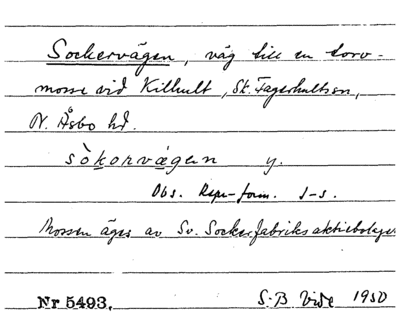 Sockervägen, väg till en torv-
mosse vid Kilhult, St. Fagerhultssn,
N. Åsbo hd.
sòkorvægen y.
Obs. Repr-form. I-s.
Mossen äges av Sv. Sockerfabriksaktiebolaget
Nr 5493. S-B. Vide 1950